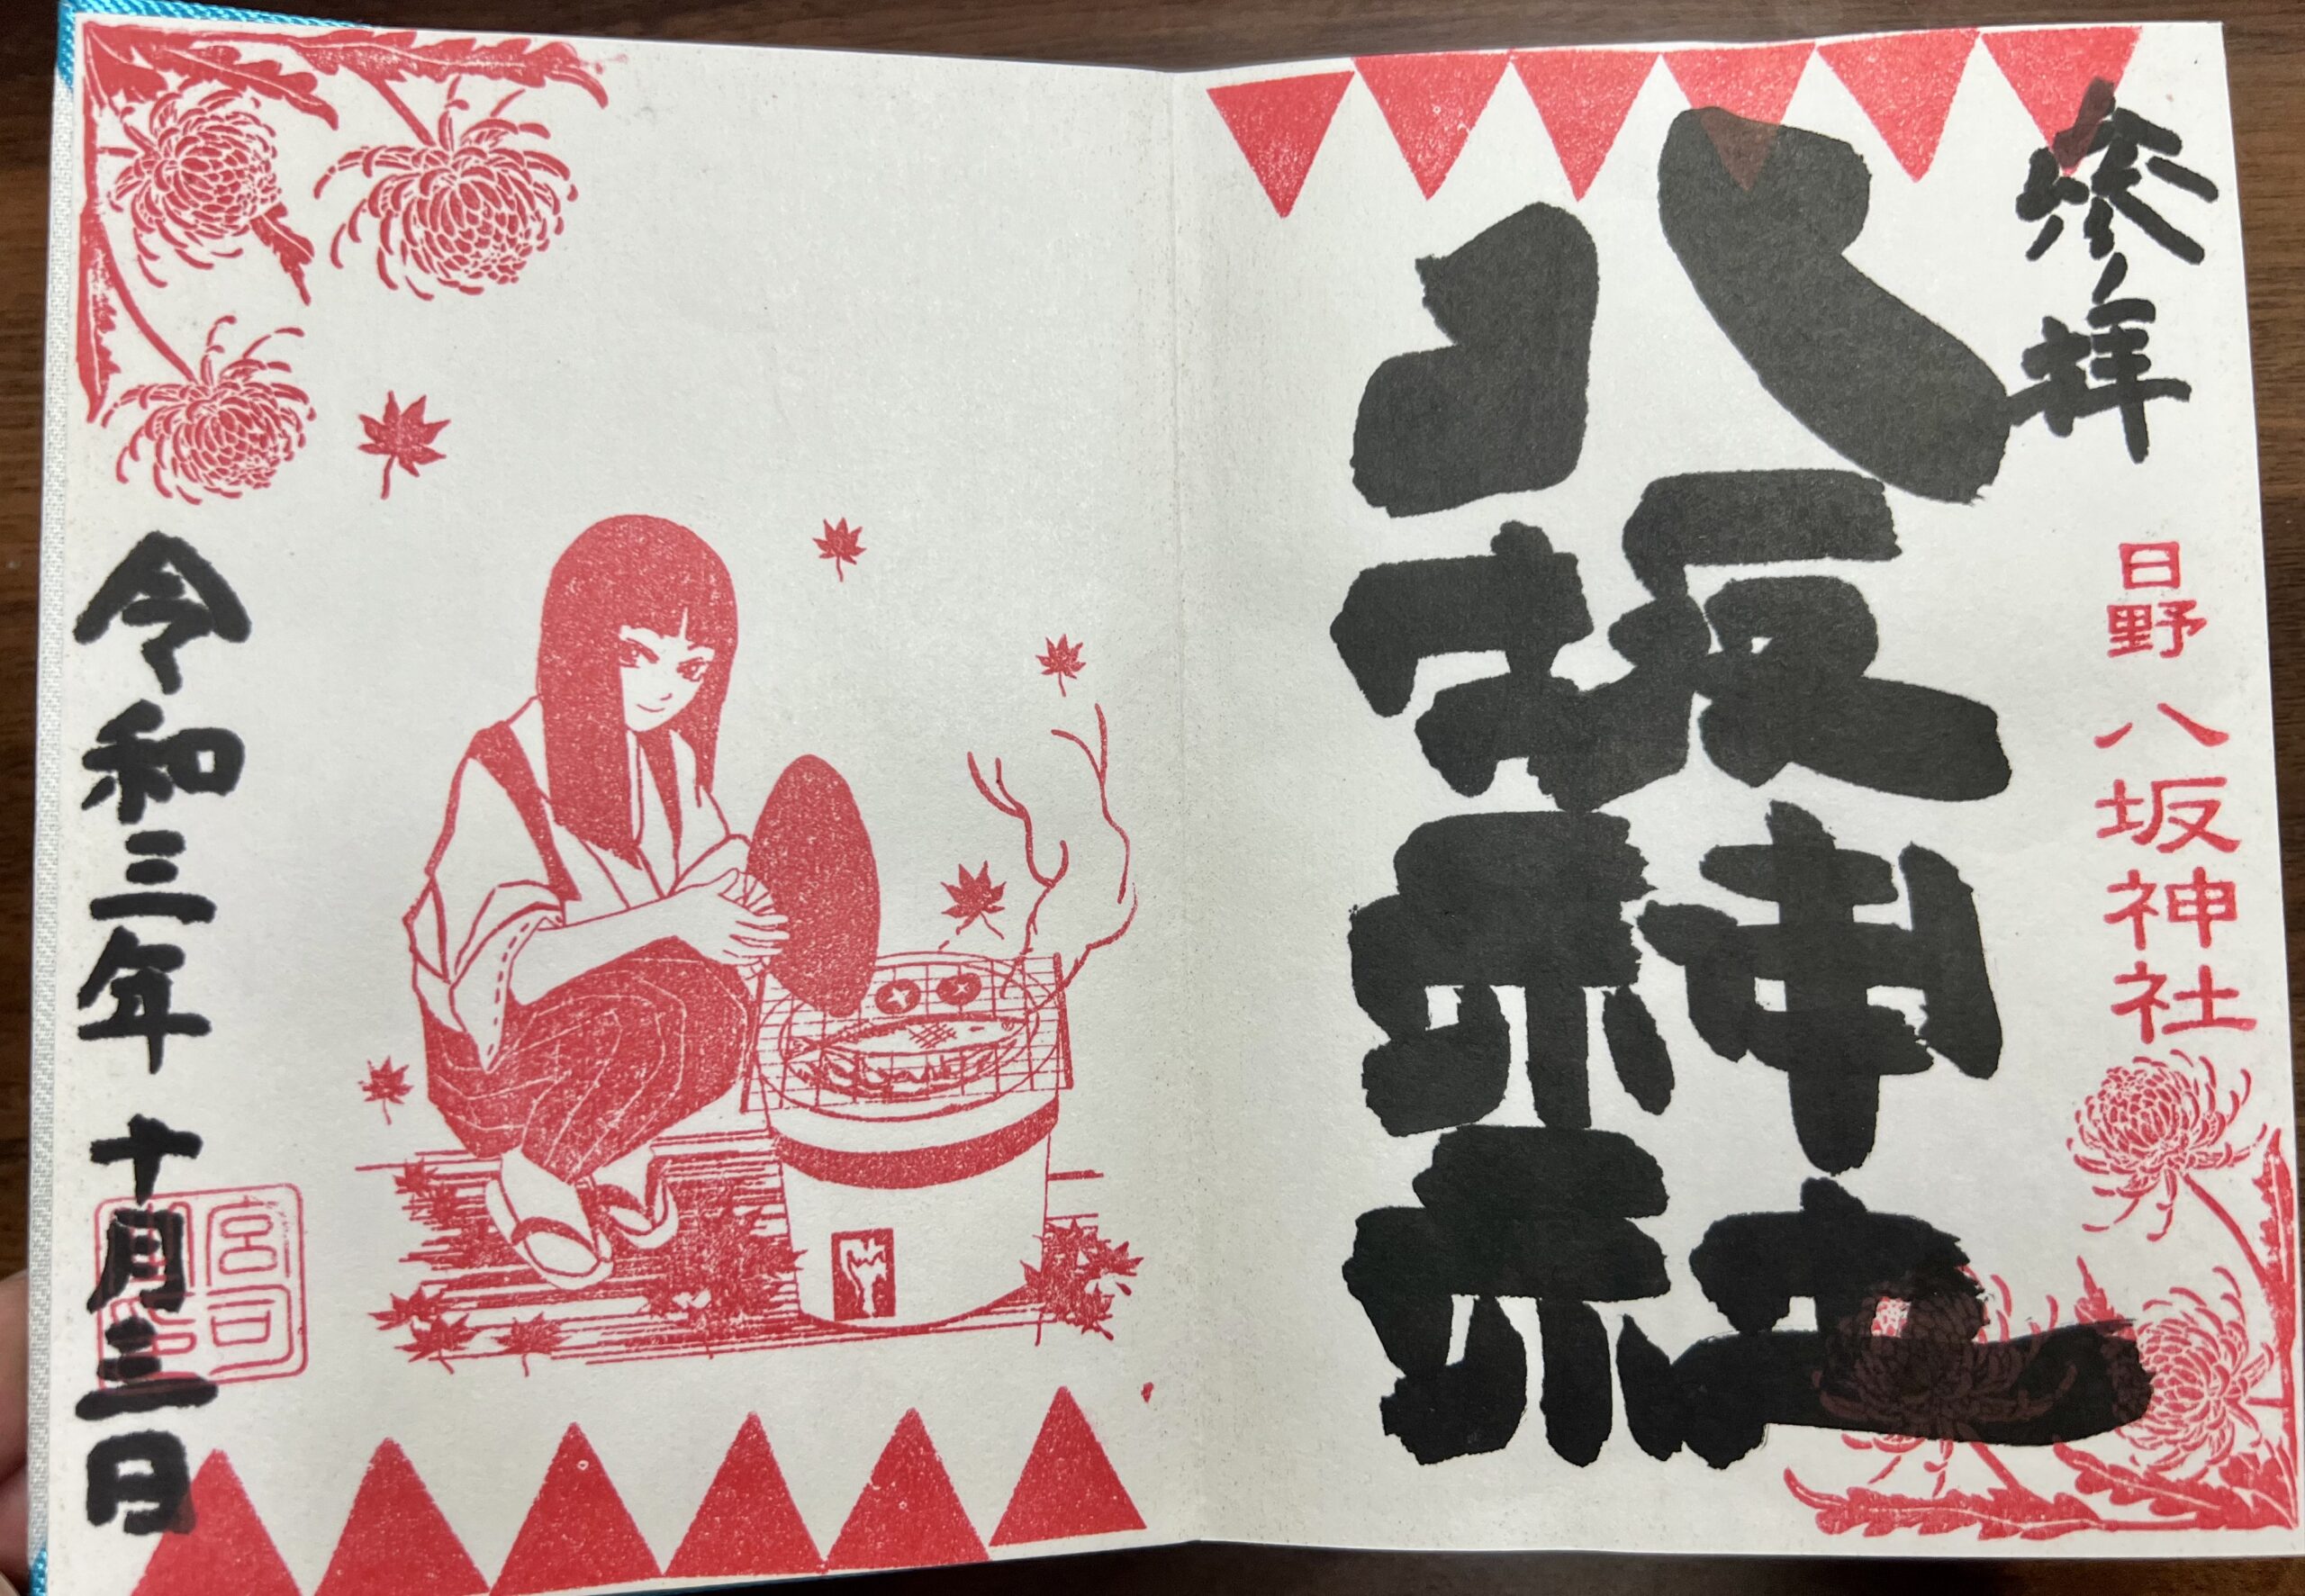 参拝
日野 八坂神社
八坂神社
宮司
令和三年 十月三日